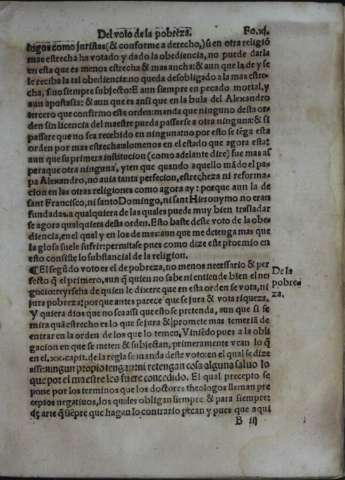 Del voto de la pobreza. Fo.xj.
logos como juristas (& conforme a derecho,) q̃ en otra religiõ
mas estrecha ha votado y dado la obediencia, no puede darla
en esta que es menos estrecha & mas ancha: & aun que la de y se
le reciba la tal obediencia: no queda desobligado a la mas estre
cha, sino siempre subjecto: E aun siempre en pecado mortal, y
aun apostasia: & aun que es ansi que en la bula del Alexandro
tercero que confirmo este orden: manda que ninguno desta or
den sin licencia del maestre pueda passarse a otra ninguna: & si
passare que no sea recebido en ninguna: no por esto se tẽga esta
orden por mas estrecha: alomenos en el estado que agora esta:
aun que su primera institucion (como adelante dire) fue mas as
pera que otra ninguna, y ten que quando aquello mãdo el pa
pa Alexandro, no auia tanta perfecion, estrecheza ni reforma-
cion en las otras religiones como agora ay: porque aun la de
sant Francisco, ni santo Domingo, ni sant Hieronymo no eran
fundadas. a qualquiera de las quales puede muy bien trasladar
se agora qualquiera desta orden. Esto baste deste voto de la obe
diencia, en el qual y en los de mas: aun que me detenga mas que
la glosa suele sufrir: permitase pues como dize este prohemio en
esto consiste lo substancial de la religion.
¶ El segũdo voto es el de pobreza, no menos necessario & per
fecto q̃ el primero, aun q̃ quien no sabe ni entiende bien el ne
gocio: reyrseha de quien le dixere que en esta orden se vota, ni
De la
pobre
za.
jura pobreza: porque antes parece que se jura & vota riqueza.
Y quiera dios que no sea assi que esto se pretenda, aun que si se
mira quã estrecho es lo que se jura & promete mas temeria de
entrar en la orden de los que lo temen, Viniẽdo pues a la obli
gacion en que se meten & subjectan, primeramente vean lo q̃
en el .xx. capit. de la regla se manda deste voto: en el qual se dize
assi: ningun propio tengan: ni retengan cosa alguna saluo lo
que por el maestre les fuere concedido. El qual precepto se
pone por los terminos que los doctores theologos llaman pre
ceptos negatiuos, los quales obligan siempre & para siempre:
de arte q̃ siẽpre que hagan lo contrario pecan y pues que aqui
B iij